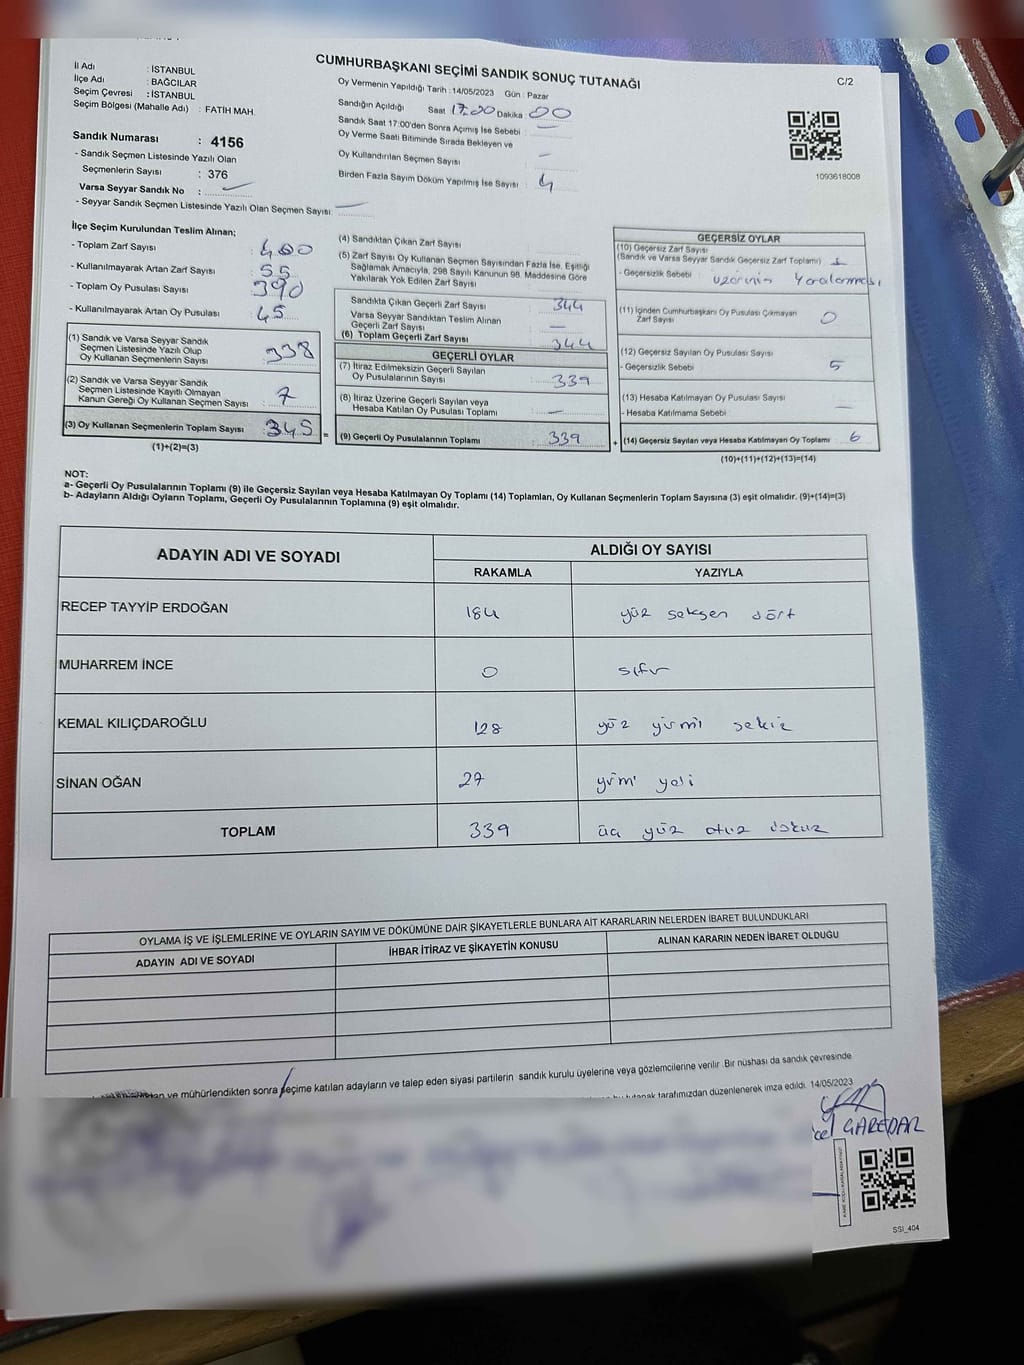 CUMHURBAŞKANI SEÇİMİ SANDIK SONUÇ TUTANAĞI
C/2
İl Adı : İSTANBUL
İlçe Adı : BAĞCILAR
Seçim Çevresi : İSTANBUL
Seçim Bölgesi (Mahalle Adı) : FATİH MAH.
Sandık Numarası : 4156
- Sandık Seçmen Listesinde Yazılı Olan
Seçmenlerin Sayısı : 376
Varsa Seyyar Sandık No :
- Seyyar Sandık Seçmen Listesinde Yazılı Olan Seçmen Sayısı:
Oy Vermenin Yapıldığı Tarih : 14/05/2023 Gün : Pazar
Sandığın Açıldığı Saat 17:00 Dakika : 00
Sandık Saat 17:00'den Sonra Açımış İse Sebebi :
Oy Verme Saati Bitiminde Sırada Bekleyen ve
Oy Kullandırılan Seçmen Sayısı
Birden Fazla Sayım Döküm Yapılmış İse Sayısı : 4
1093618008
İlçe Seçim Kurulundan Teslim Alınan;
- Toplam Zarf Sayısı : 400
- Kullanılmayarak Artan Zarf Sayısı : 55
- Toplam Oy Pusulası Sayısı : 390
- Kullanılmayarak Artan Oy Pusulası : 45
(1) Sandık ve Varsa Seyyar Sandık
Seçmen Listesinde Yazılı Olup
Oy Kullanan Seçmenlerin Sayısı : 338
(2) Sandık ve Varsa Seyyar Sandık
Seçmen Listesinde Kayıtlı Olmayan
Kanun Gereği Oy Kullanan Seçmen Sayısı : 7
(3) Oy Kullanan Seçmenlerin Toplam Sayısı : 345
(1)+(2)=(3)
(4) Sandıktan Çıkan Zarf Sayısı
(5) Zarf Sayısı Oy Kullanan Seçmen Sayısından Fazla İse, Eşitliği
Sağlamak Amacıyla, 298 Sayılı Kanunun 98. Maddesine Göre
Yakılarak Yok Edilen Zarf Sayısı
Sandıkta Çıkan Geçerli Zarf Sayısı : 344
Varsa Seyyar Sandıktan Teslim Alınan
Geçerli Zarf Sayısı
(6) Toplam Geçerli Zarf Sayısı : 344
GEÇERLİ OYLAR
(7) İtiraz Edilmeksizin Geçerli Sayılan
Oy Pusulalarının Sayısı : 339
(8) İtiraz Üzerine Geçerli Sayılan veya
Hesaba Katılan Oy Pusulası Toplamı
= (9) Geçerli Oy Pusulalarının Toplamı : 339
GEÇERSİZ OYLAR
(10) Geçersiz Zarf Sayısı
(Sandık ve Varsa Seyyar Sandık Geçersiz Zarf Toplamı) 1
- Geçersizlik Sebebi : üzerinin
(11) İçinden Cumhurbaşkanı Oy Pusulası Çıkmayan
Zarf Sayısı 0
(12) Geçersiz Sayılan Oy Pusulası Sayısı
- Geçersizlik Sebebi 5
(13) Hesaba Katılmayan Oy Pusulası Sayısı
- Hesaba Katılmama Sebebi
+ (14) Geçersiz Sayılan veya Hesaba Katılmayan Oy Toplamı : 6
(10)+(11)+(12)+(13)=(14)
NOT:
a- Geçerli Oy Pusulalarının Toplamı (9) ile Geçersiz Sayılan veya Hesaba Katılmayan Oy Toplamı (14) Toplamları, Oy Kullanan Seçmenlerin Toplam Sayısına (3) eşit olmalıdır. (9)+(14)=(3)
b- Adayların Aldığı Oyların Toplamı, Geçerli Oy Pusulalarının Toplamına (9) eşit olmalıdır.
ADAYIN ADI VE SOYADI ALDIĞI OY SAYISI
RAKAMLA YAZIYLA
RECEP TAYYİP ERDOĞAN 184 yüz seksen dört
MUHARREM İNCE 0 sıfır
KEMAL KILIÇDAROĞLU 128 yüz yirmi sekiz
SİNAN OĞAN 27 yirmi yedi
TOPLAM 339 üç yüz otuz dokuz
OYLAMA İŞ VE İŞLEMLERİNE VE OYLARIN SAYIM VE DÖKÜMÜNE DAİR ŞİKAYETLERLE BUNLARA AİT KARARLARIN NELERDEN İBARET BULUNDUKLARI
ADAYIN ADI VE SOYADI İHBAR İTİRAZ VE ŞİKAYETİN KONUSU ALINAN KARARIN NEDEN İBARET OLDUĞU
ve mühürlendikten sonra seçime katılan adayların ve talep eden siyasi partilerin sandık kurulu üyelerine veya gözlemcilerine verilir. Bir nüshası da sandık çevresinde
tarafımızdan düzenlenerek imza edildi. 14/05/2023
GAREDAR
SSI_404